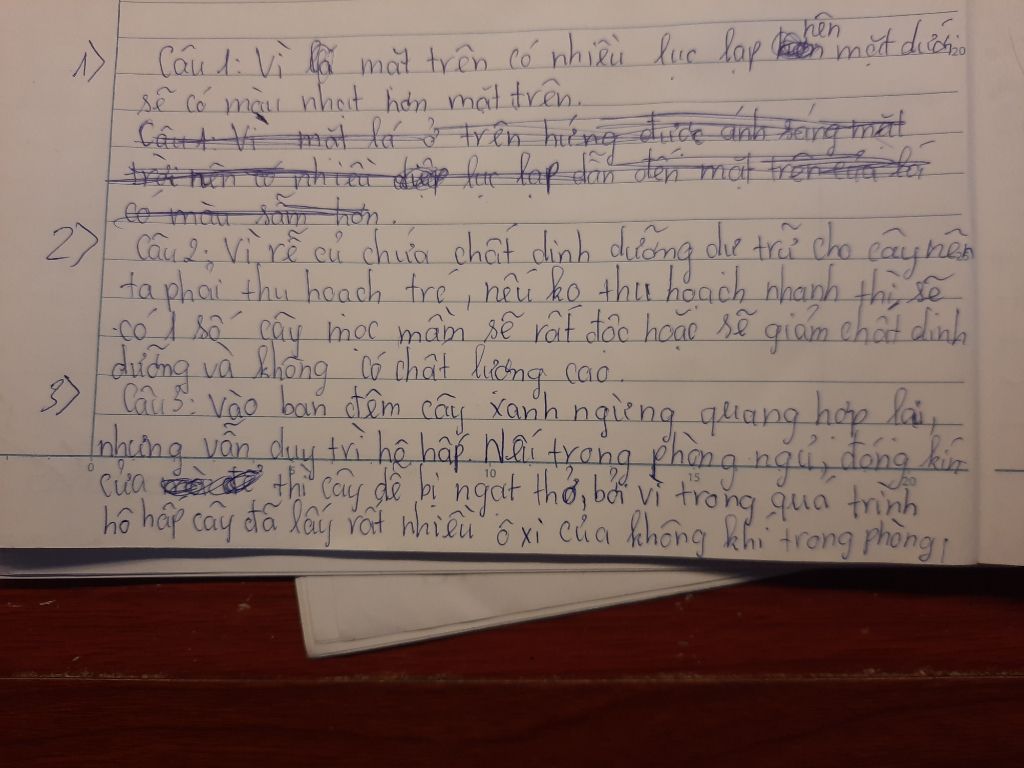 1) Câu 1: Vì lá mặt trên có nhiều lục lạp nên mặt dưới
sẽ có màu nhạt hơn mặt trên.
Câu 1: Vì mặt lá ở trên hứng được ánh sáng mặt
trời nên có nhiều diệp lục lạp dẫn đến mặt trên của lá
có màu sẫm hơn.
2) Câu 2: Vì rễ củ chứa chất dinh dưỡng dự trữ cho cây nên
ta phải thu hoạch trc, nếu ko thu hoạch nhanh thì sẽ
có 1 số cây mọc mầm sẽ rất độc hoặc sẽ giảm chất dinh
dưỡng và không có chất lượng cao.
3) Câu 3: Vào ban đêm cây xanh ngừng quang hợp lại,
nhưng vẫn duy trì hô hấp. Nếu trong phòng ngủ, đóng kín
cửa thì cây dễ bị ngạt thở, bởi vì trong quá trình
hô hấp cây đã lấy rất nhiều ô xi của không khí trong phòng,